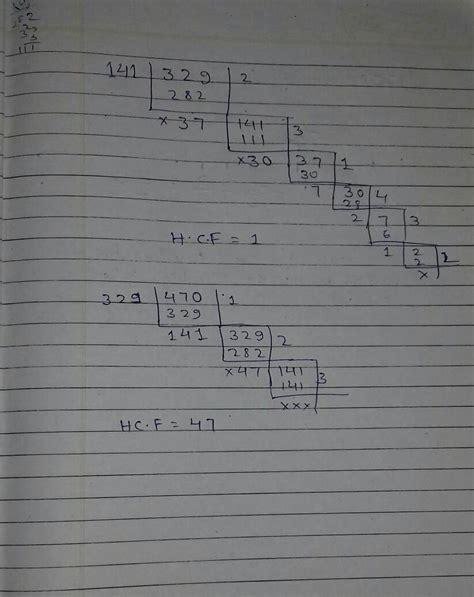 141 329 2
282
x 37 141 3
111
x30 37 1
30
7 30 4
28
2 7 3
6
1 2 2
2
x
H.C.F = 1
329 470 1
329
141 329 2
282
x 47 141 3
141
xxx
HC.F = 47